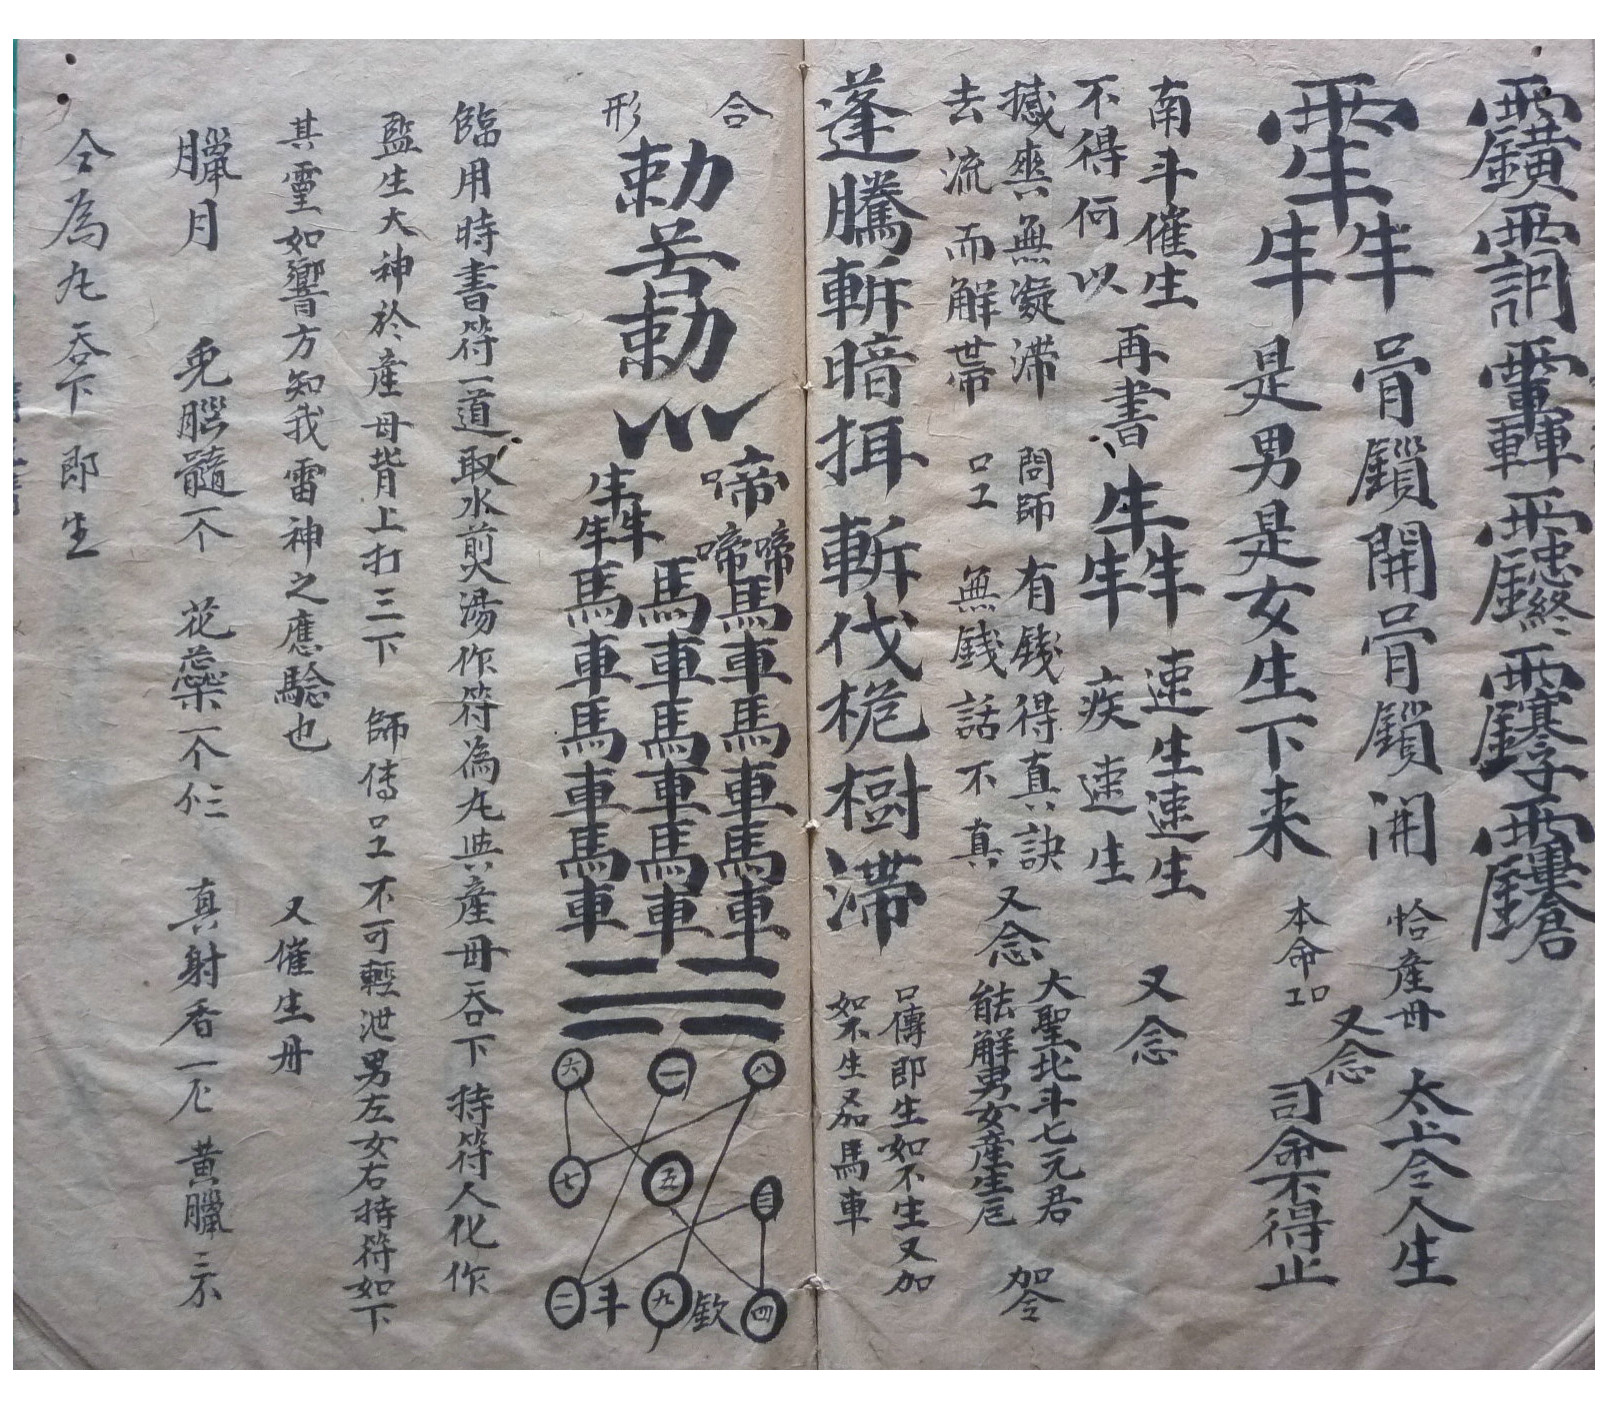 生
生 骨鎖開骨鎖開 恰產毋 又念 太上令人生
生 是男是女生下来 本命 司命不得止
南斗催生 再書 生生生 速生速生 又念
不得何以 疾速生
撼與無凝滞 問師 有錢得真訣 又念 大聖北斗七元君 加令
去流而解带 無錢話不真 能解男女產生厄
口傳即生如不生又加
如不生又加馬車
蓬騰斬暗挕斬伐桅樹滞
合
形
勅
勅
啼啼啼
生生生
馬車馬車馬車
馬車馬車馬車
馬車馬車馬車
八 一 六
三 五 七
四 欽 九 斗 二
臨用時書符一道取水煎湯作符為丸與產毋吞下持符人化作
監生大神於產毋背上打三下 師傅 不可輕泄男左女右持符如下
其靈如響方知我雷神之應驗也 又催生丹
臘月 兎腦髓一个 花蕊 一个 真射香一 黄臘三
合為丸吞下即生